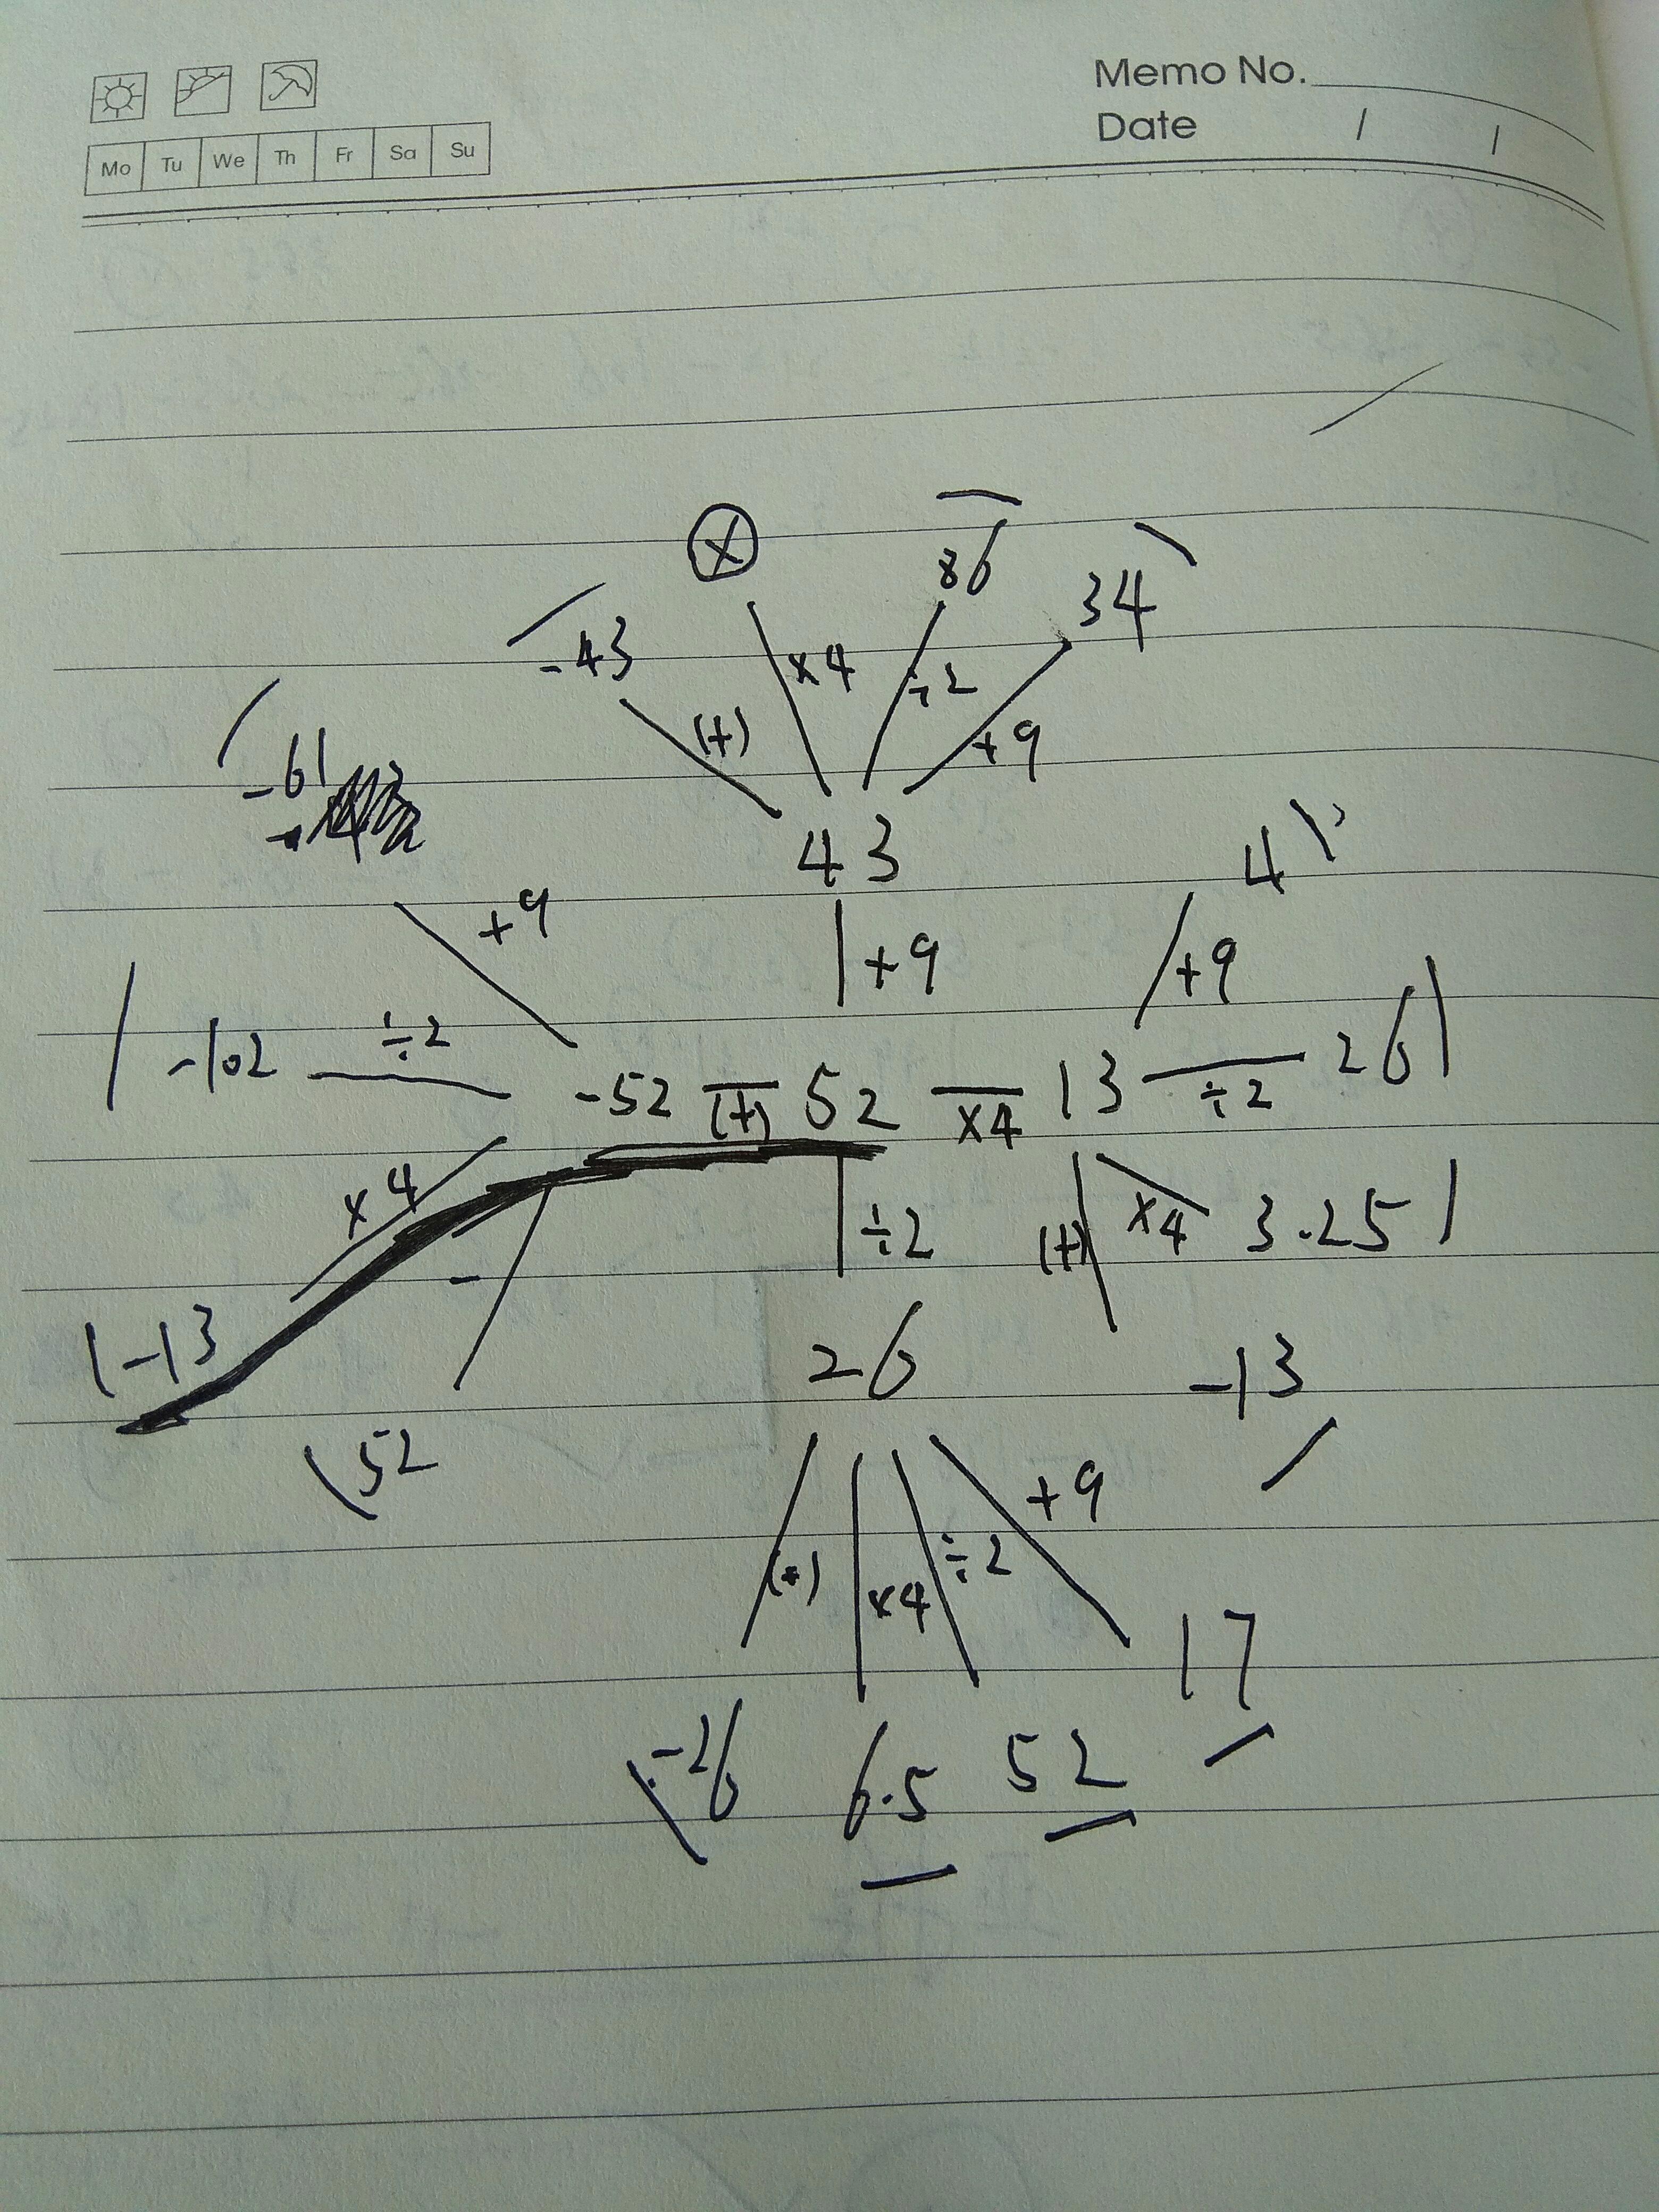 Memo No.
Date / /
Mo Tu We Th Fr Sa Su
X 86 34
-43 ×4 ÷2
(+) +9
-61
43 4
+9 +9 +9
-102 ÷2 -52 (+) 52 ×4 13 ÷2 26
×4 - ÷2 (+) ×4 3.25
-13 26 -13
52
+9
(+) ×4 ÷2
17
-26 6.5 52